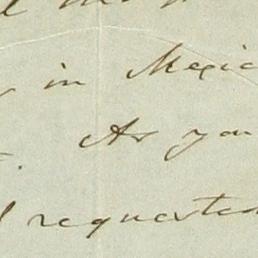 in Mexic
As you
requested